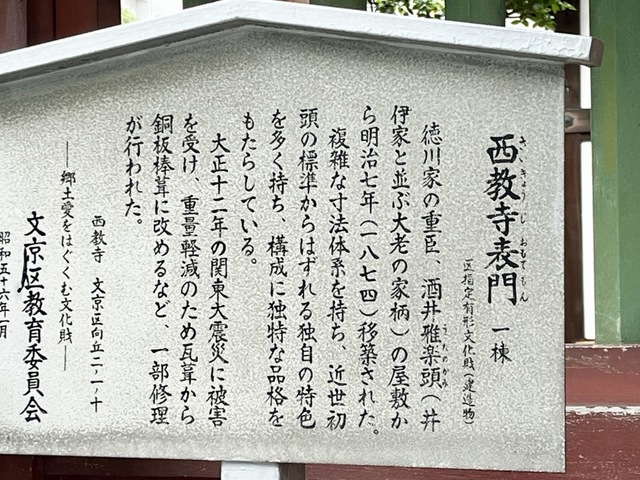 さいきょうじおもてもん
西教寺表門 一棟
区指定有形文化財(建造物)
徳川家の重臣、酒井雅楽頭(井
うたのかみ
伊家と並ぶ大老の家柄)の屋敷か
ら明治七年(一八七四)移築された。
複雑な寸法体系を持ち、近世初
頭の標準からはずれる独自の特色
を多く持ち、構成に独特な品格を
もたらしている。
大正十二年の関東大震災に被害
を受け、重量軽減のため瓦葺から
銅板棒葺に改めるなど、一部修理
が行われた。
西教寺 文京区向丘二-一-十
―郷土愛をはぐくむ文化財―
文京区教育委員会
昭和五十六年一月